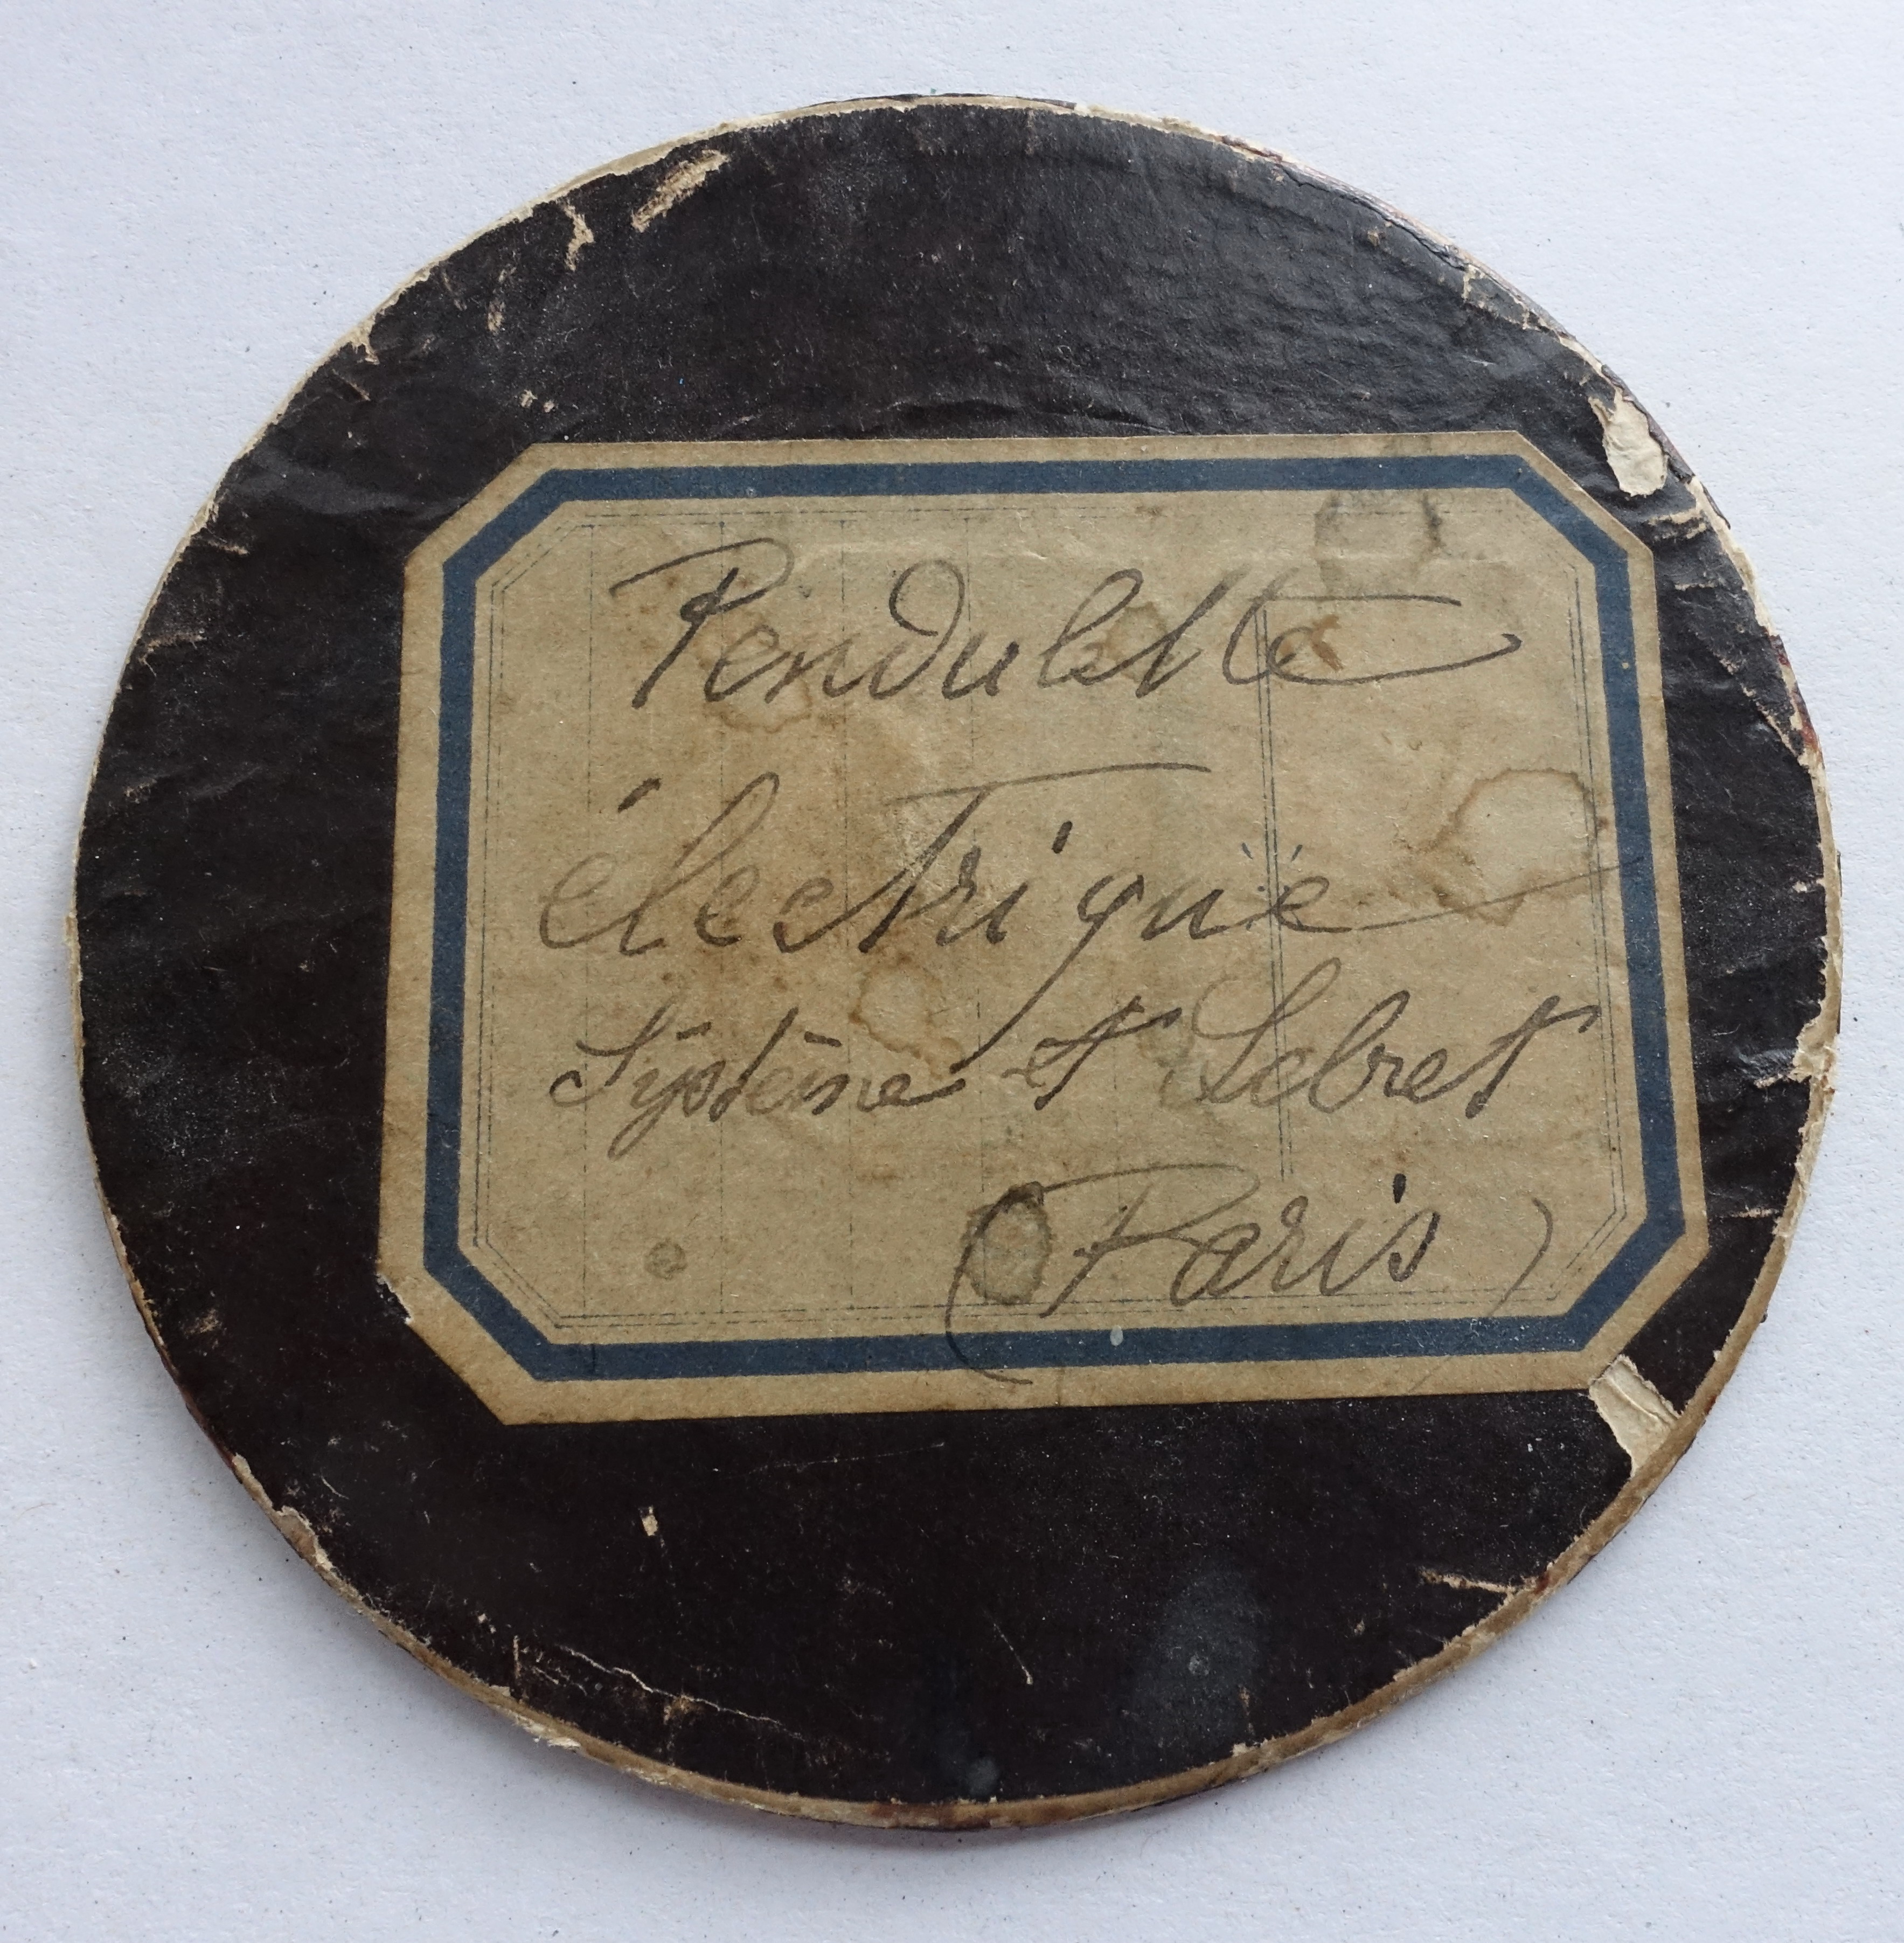 Pendulette
électrique
Système Lebret
(Paris)